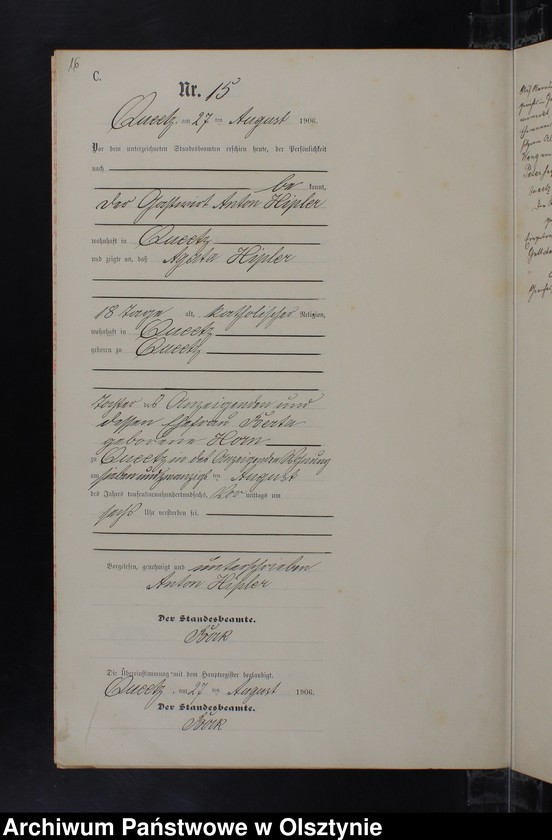 16
C.
Nr. 15
Queetz, am 27 ten August 1906.
Vor dem unterzeichneten Standesbeamten erschien heute, der Persönlichkeit
nach
be kannt,
der Gastwirt Anton Hipler
wohnhaft in Queetz
und zeigte an, daß Agata Hipler
18 Tage alt, katholischer Religion,
wohnhaft in Queetz
geboren zu Queetz
Tochter des Anzeigenden und
dessen Ehefrau Berta
geborene Horn
zu Queetz in des Anzeigenden Wohnung
am siebenundzwanzigs ten August
des Jahres tausendneunhundertundsechs, Vor mittags um
sechs Uhr verstorben sei.
Vorgelesen, genehmigt und unterschrieben
Anton Hipler
Der Standesbeamte.
Bork
Die Übereinstimmung mit dem Hauptregister beglaubigt.
Queetz, am 27 ten August 1906.
Der Standesbeamte.
Bork
Archiwum Państwowe w Olsztynie